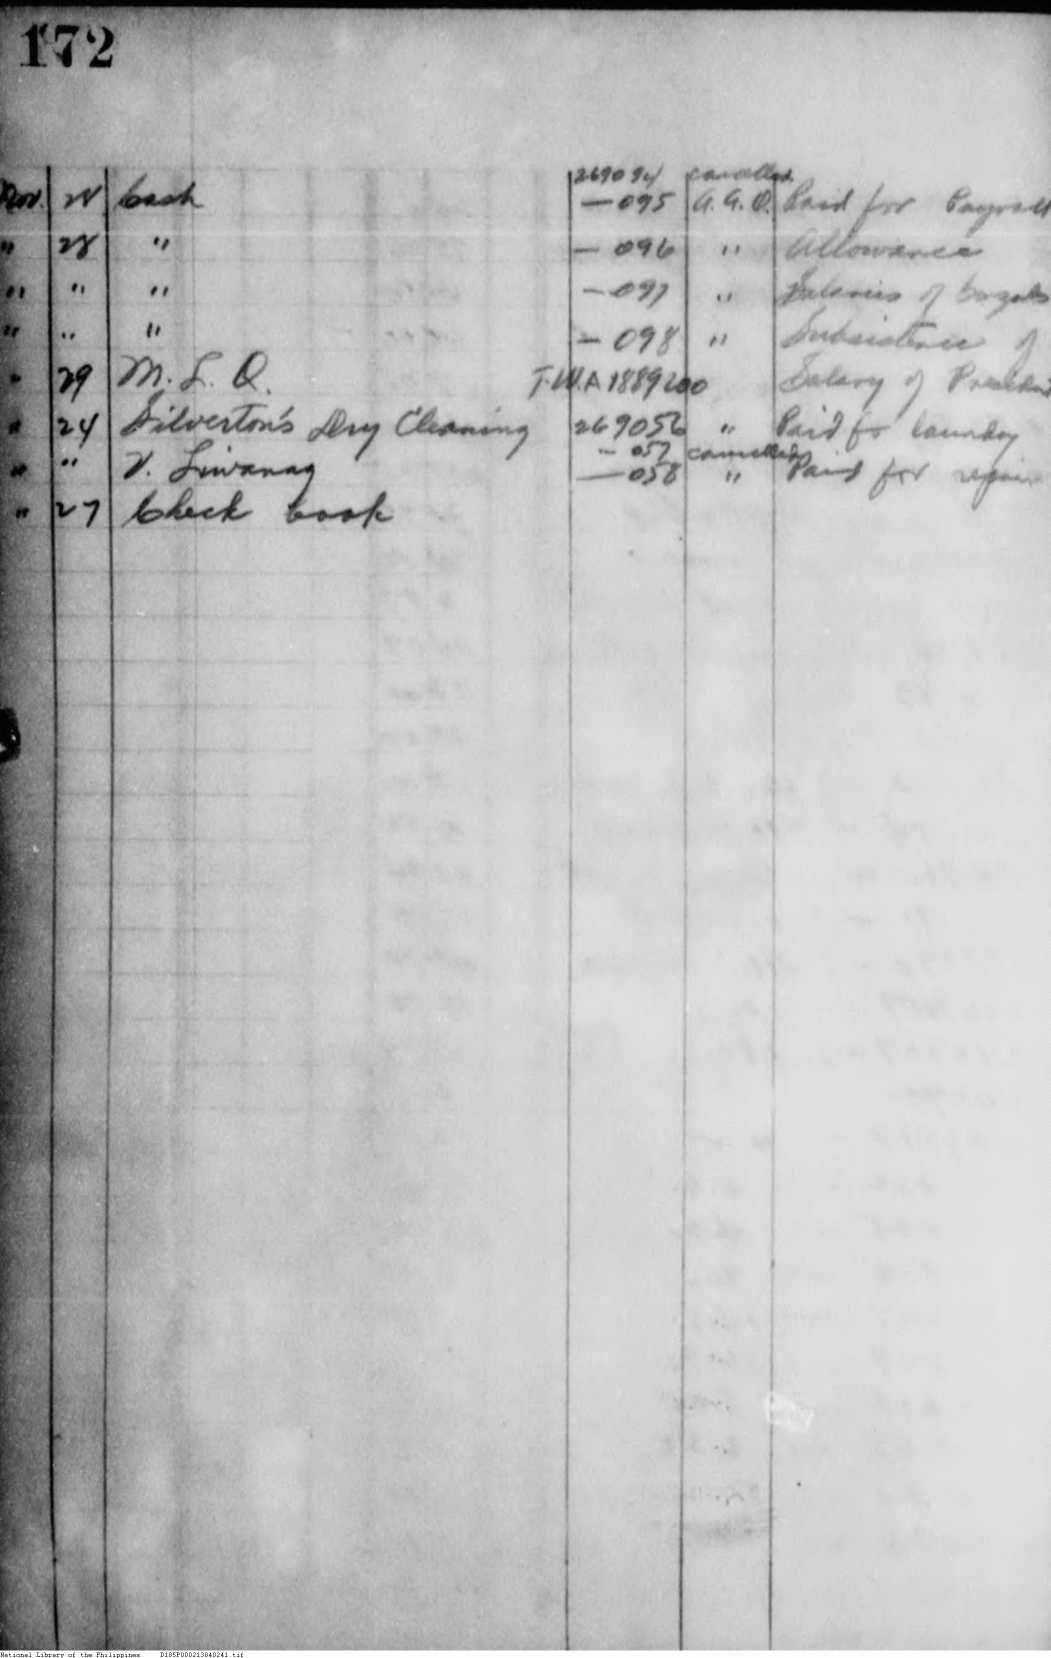 172
269094 cancelled
Nov. 28 Cash — 095 A.G.O. Paid for Payroll
" 28 " — 096 " Allowance
" " " — 097 " Salaries of
" " " — 098 " Subsistence of
" 29 M. L. Q. T.W.A 1889200 Salary of President
" 24 Silverton's Dry Cleaning 269056 " Paid for laundry
— 057 cancelled
" " V. Liwanag — 058 " Paid for repair
" 27 Check book
National Library of the Philippines D185P000213840241.tif